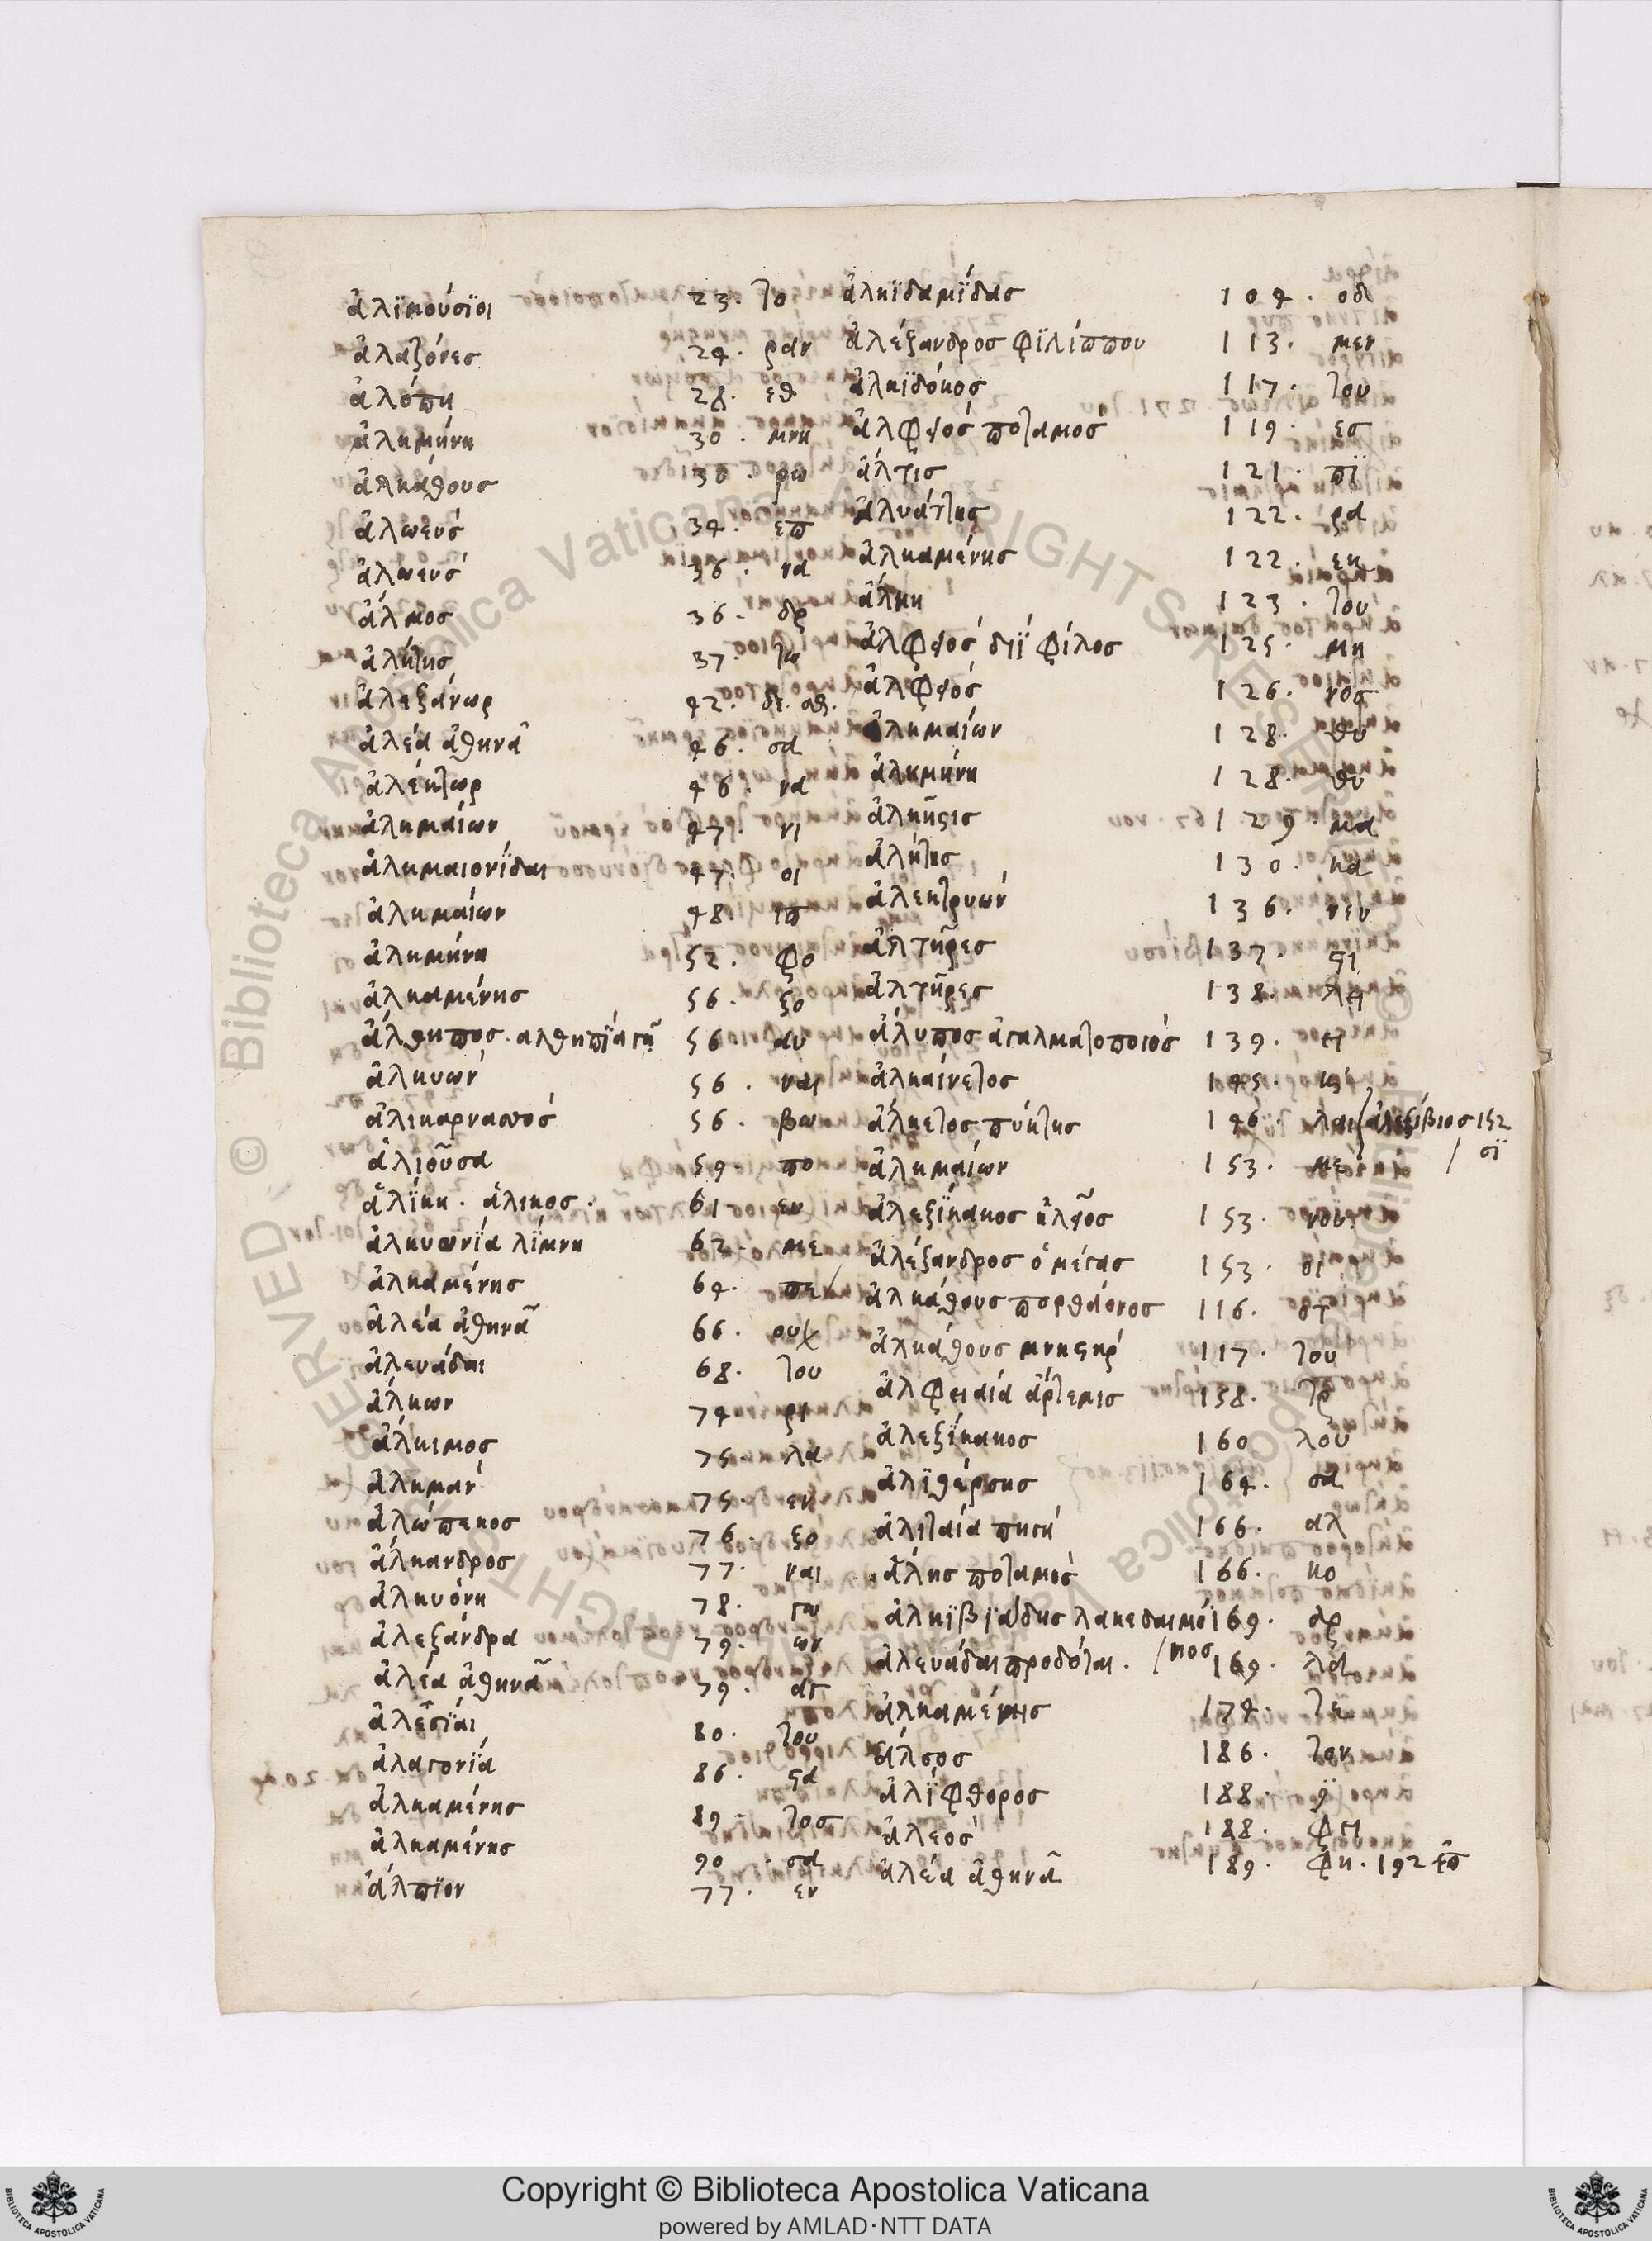 ἁλϊμούσϊοι 23. το
ἀλαζόνες 24. ραν
ἀλόπη 28. εθ
ἀλκμήνη 30. μνη
ἀλκάθους 30. ρω
ἀλωεύς 34. επ
ἀλωεύς 36. να
ἄλμος 36. δρ
ἀλήτης 37. τω
ἀλεξάνωρ 42. δε. αθ.
ἀλέα ἀθηνᾶ 46. σα
ἀλέκτωρ 46. να
ἀλκμαίων 47. νι
ἀλκμαιονίδαι 47. οι
ἀλκμαίων 48. ιπ
ἀλκμήνη 52. φο
ἀλκαμένης 56. ξο
ἄλθηπος. αλθηπϊα γῆ 56 αυ
ἀλκυών 56. ναι
ἁλικαρνασσός 56. βω
ἁλιοῦσα 59. πο
ἁλϊκη. ἅλικος. 61. εν
ἀλκυωνϊα λϊμνη 62. με
ἀλκαμένης 64. πε
ἀλέα ἀθηνᾶ 66. ουχ
ἀλευάδαι 68. του
ἄλκων 74 ρι
ἄλκιμος 75. λα
ἀλκμάν 75. εν
ἀλώπεκος 76. ξο
ἄλκανδρος 77. και
ἀλκυόνη 78. γω
ἀλεξάνδρα 79. ων
ἀλέα ἀθηνᾶ 79. αγ
ἀλεσϊαι 80. του
ἀλαγονϊα 86. ϛα
ἀλκαμένης 89. τος
ἀλκαμένης 90. σα
ἄλπϊον 77. εν
ἀλκϊδαμϊδας 104. οδ
ἀλέξανδρος φϊλίππου 113. μεν
ἀλκϊδόκος 117. του
ἀλφειός ποταμός 119. εσ
ἄλτις 121. πϊ
ἀλυάττης 122. ρα
ἀλκαμένης 122. εκ
ἄλκη 123. του
ἀλφειός διϊ φίλος 125. μη
ἀλφειός 126. νος
ἀλκμαίων 128. θυ
ἀλκμήνη 128. θυ
ἄλκηστις 129. μα
ἀλήτης 130. κα
ἀλεκτρυών 136. νευ
ἁλτῆρες 137. ϛι
ἁλτῆρες 138. λη
ἄλυπος ἀγαλματοποιός 139. η
ἀλκαίνετος 145.
ἄλκετος πύκτης 146. λαι / ἀλεξίβιος 152
/ σϊ
ἀλκμαίων 153. με
ἀλεξϊκακος ἡλιος 153. νου
ἀλέξανδρος ὁ μέγας 153. οι
ἀλκάθους πορθάονος 116. στ
ἀλκάθους μνηστήρ 117. του
ἀλφειαία ἄρτεμις 158. τρ
ἀλεξϊκακος 160 λου
ἁλϊθέρσης 164. σα
ἀλιταία πηγή 166. αλ
ἄλης ποταμός 166. κο
ἀλκϊβϊάδης λακεδαιμό 169. αρ
/νιος
ἀλευάδαι προδόται. 169. λα
ἀλκαμένης 174. τε
ἄλσος 186. τον
ἁλϊφθορος 188.
ἀλεός 188. φη
ἀλέα ἀθηνᾶ 189. φη. 192 το
Copyright © Biblioteca Apostolica Vaticana
powered by AMLAD·NTT DATA